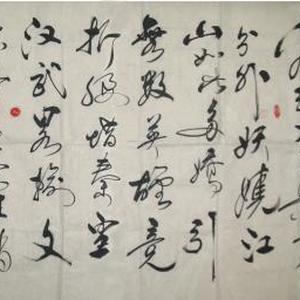 分外妖嬈江
山如此多嬌引
無数英雄竞
折腰惜秦皇
汉武畧输文